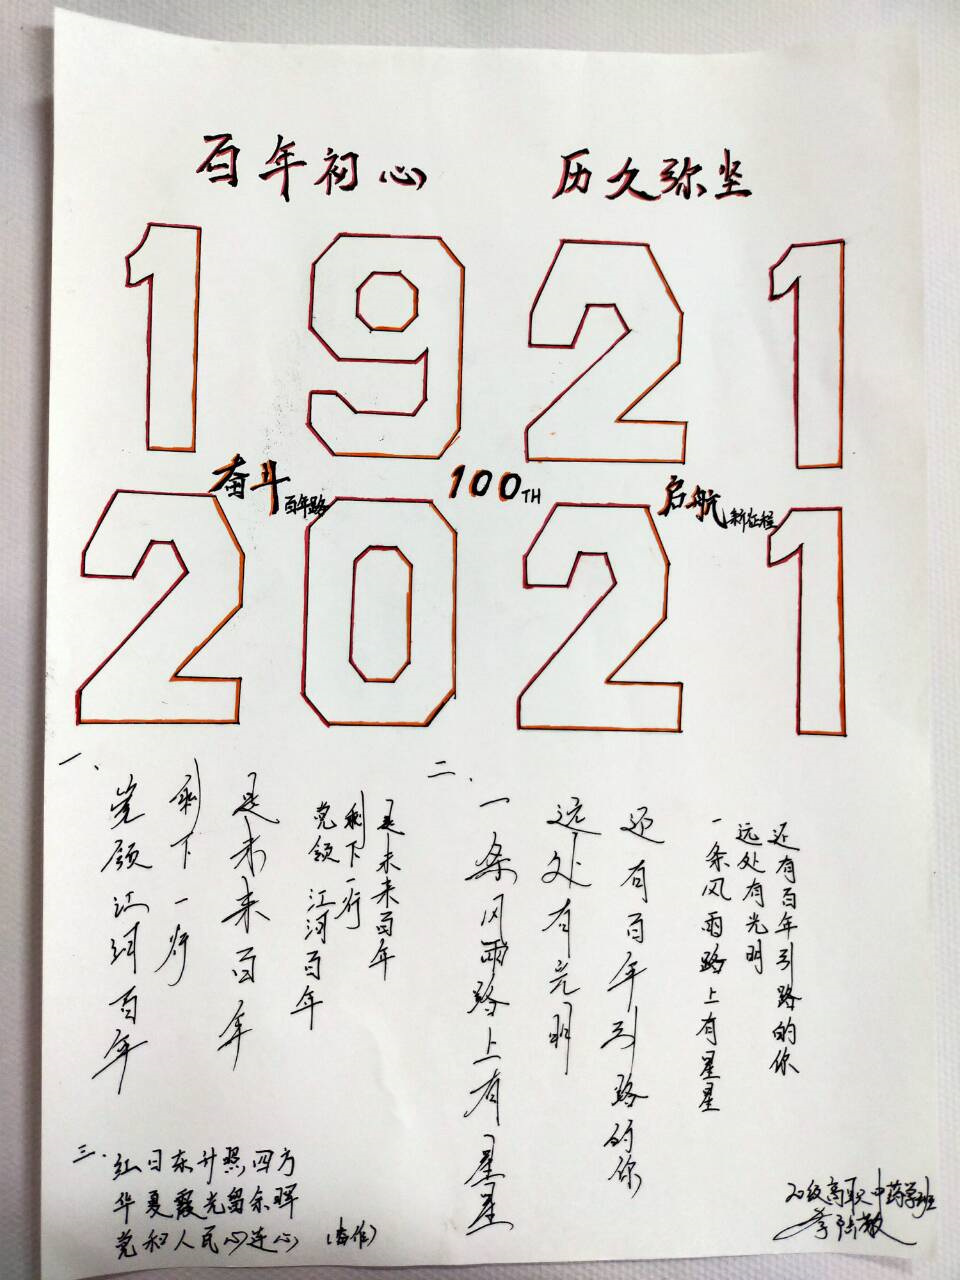 百年初心 历久弥坚
1921
奋斗百年路 100TH 启航新征程
2021
一、
党领江河百年
剩下一行
是未来百年
党领江河百年
剩下一行
是未来百年
二.
一条风雨路上有星星
远处有光明
还有百年引路的你
一条风雨路上有星星
远处有光明
还有百年引路的你
三.
红日东升照四方
华夏霞光留余晖
党和人民心连心
级高职中药学班
李